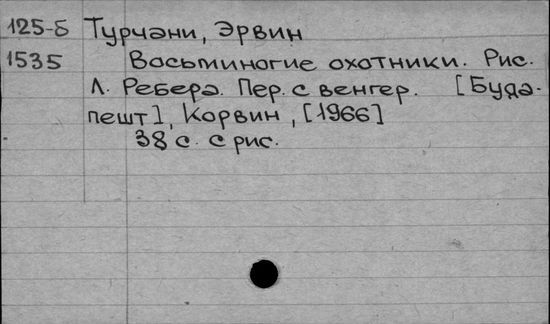 125-б Турчани, Эрвин
1535 Восьминогие охотники. Рис.
Л. Ребера. Пер. с венгер. [Буда-
пешт], Корвин, [1966]
38 с. с рис.